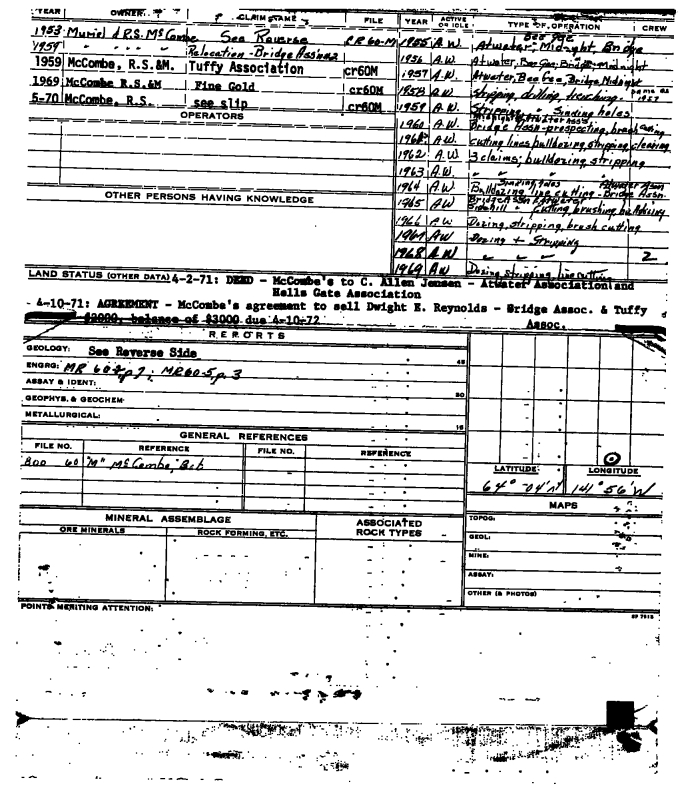 YEAR OWNER CLAIM NAME FILE YEAR ACTIVE OR IDLE TYPE OF OPERATION CREW
1953 Muriel & R.S. McCombe See Reverse CR 60-M 1955 A.W. Atwater, Midnight, Bridge
1959 " " " " Relocation-Bridge Assn 1956 A.W. Atwater, Bee Gee, Bridge, Midnight
1959 McCombe, R.S.&M. Tuffy Association cr60M 1957 A.W. Atwater, Bee Gee, Bridge, Midnight
1969 McCombe R.S.&M Fine Gold cr60M 1958 A.W. Stripping, drilling, trenching. same as 1957
5-70 McCombe, R.S. see slip cr60M 1959 A.W. Stripping, " Sinking holes
OPERATORS
1960 A.W. Bridge Assn-prospecting, brush cutting
A.W. cutting lines, bulldozing, stripping, clearing
1962 A.W. 3 claims; bulldozing, stripping
1963 A.W. " " "
1964 A.W. Sinking holes Atwater Assn
Bulldozing, line cutting - Bridge Assn.
OTHER PERSONS HAVING KNOWLEDGE
1965 A.W. Bridge Assn & Atwater
Sidehill " Cutting, brushing, bulldozing
1966 A.W. Dozing, stripping, brush cutting
1967 A.W Dozing + Stripping
1968 A.W " " " 2
1969 A.W Dozing, stripping, line cutting
LAND STATUS (OTHER DATA) 4-2-71: DEED - McCombe's to C. Allen Jensen - Atwater Association and
Hells Gate Association
4-10-71: AGREEMENT - McCombe's agreement to sell Dwight E. Reynolds - Bridge Assoc. & Tuffy
Assoc.
$2000, balance of $3000 due 4-10-72
REPORTS
GEOLOGY: See Reverse Side
45
ENGRG: MR 60-2 p7; MR60-5, p. 3
ASSAY & IDENT:
30
GEOPHYS. & GEOCHEM.
METALLURGICAL:
15
GENERAL REFERENCES
FILE NO. REFERENCE FILE NO. REFERENCE
BOO 60 "M" McCombe, Bob
LATITUDE LONGITUDE
64° -04' N 141° 56' W
MINERAL ASSEMBLAGE ASSOCIATED ROCK TYPES MAPS
ORE MINERALS ROCK FORMING, ETC.
TOPOG:
GEOL:
MINE:
ASSAY:
OTHER (& PHOTOS)
POINTS MERITING ATTENTION: